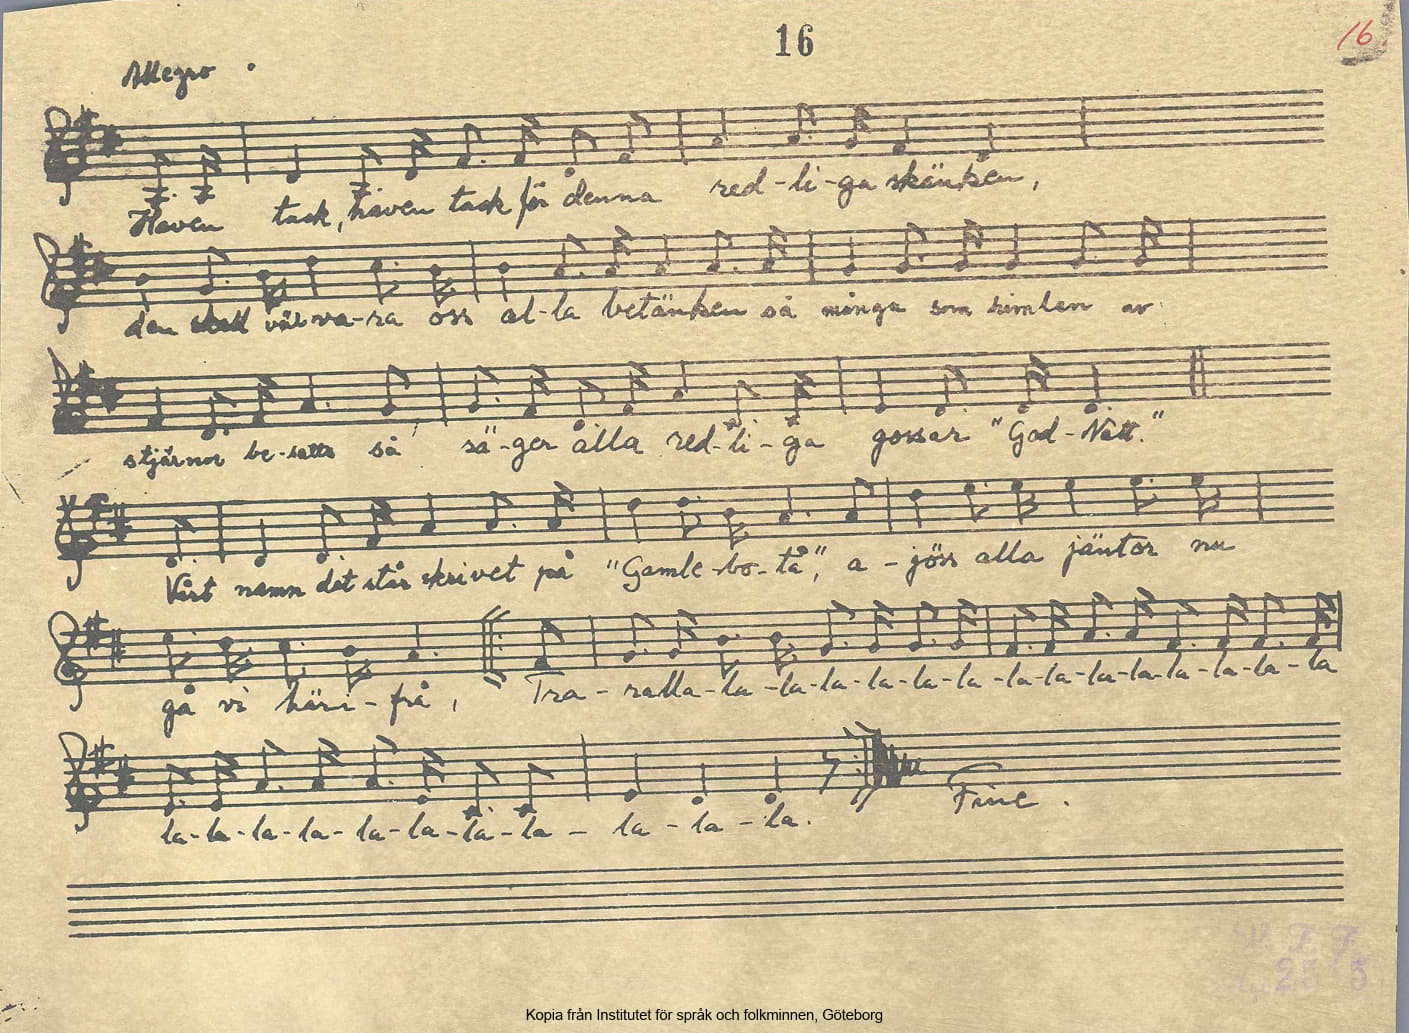 16
16
Allegro
Haven tack, haven tack för denna red-li-ga skänken,
den skall vår va-ra oss al-la betänken så många som himlen av
stjärnor be-satts så sä-ger alla red-li-ga gossar "God-Natt."
Vårt namn det står skrivet på "Gamle-bo-tå", a-jöss alla jäntor nu
gå vi häri-från,
Tra-ralla-la-la-la-la-la-la-la-la-la-la-la-la-la-la
la-la-la-la-la-la-la-la-la-la-la.
Fine.
V F F
23 5
Kopia från Institutet för språk och folkminnen, Göteborg